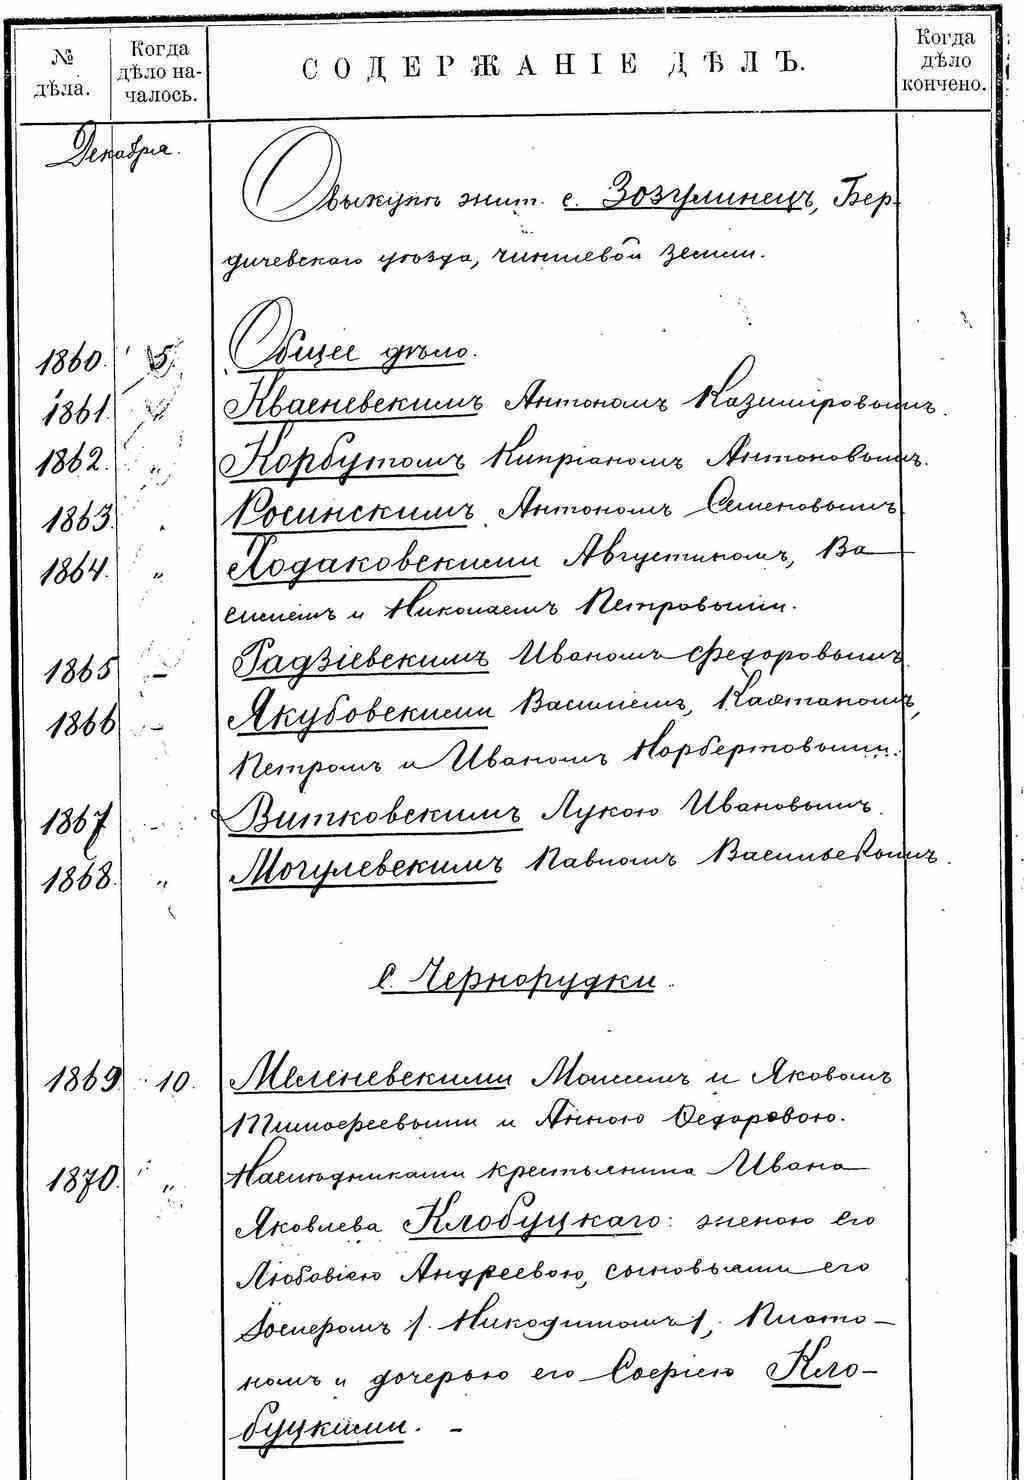 № дѣла. Когда дѣло на-чалось. СОДЕРЖАНІЕ ДѢЛЪ. Когда дѣло кончено.
Декабря.
О выкупѣ жит. с. Зозулинецъ, Бер-
дичевскаго уѣзда, чиншевой земли.
1860. 5. Общее дѣло.
1861. Квасневскимъ Антономъ Казиміровымъ.
1862. „ Корбутомъ Кипріаномъ Антоновымъ.
1863. „ Росинскимъ Антономъ Семеновымъ
1864. „ Ходаковскими Августиномъ, Ва-
силіемъ и Николаемъ Петровыми.
1865 – Радзіевскимъ Иваномъ Федоровымъ
1866 – Якубовскими Василіемъ, Каэтаномъ,
Петромъ и Иваномъ Норбертовыми.
1867 – Витковскимъ Лукою Ивановымъ.
1868. „ Могулевскимъ Павломъ Васильевымъ.
с. Чернорудки.
1869 10. Меленевскими Моисеемъ и Яковомъ
Тимофеевыми и Анною Ѳедоровою.
1870. „ Наслѣдниками крестьянина Ивана
Яковлева Клобуцкаго: женою его
Любовію Андреевою, сыновьями его
/. Никодимомъ /, Плато-
номъ и дочерью его Софіею Кло-
буцкими. –